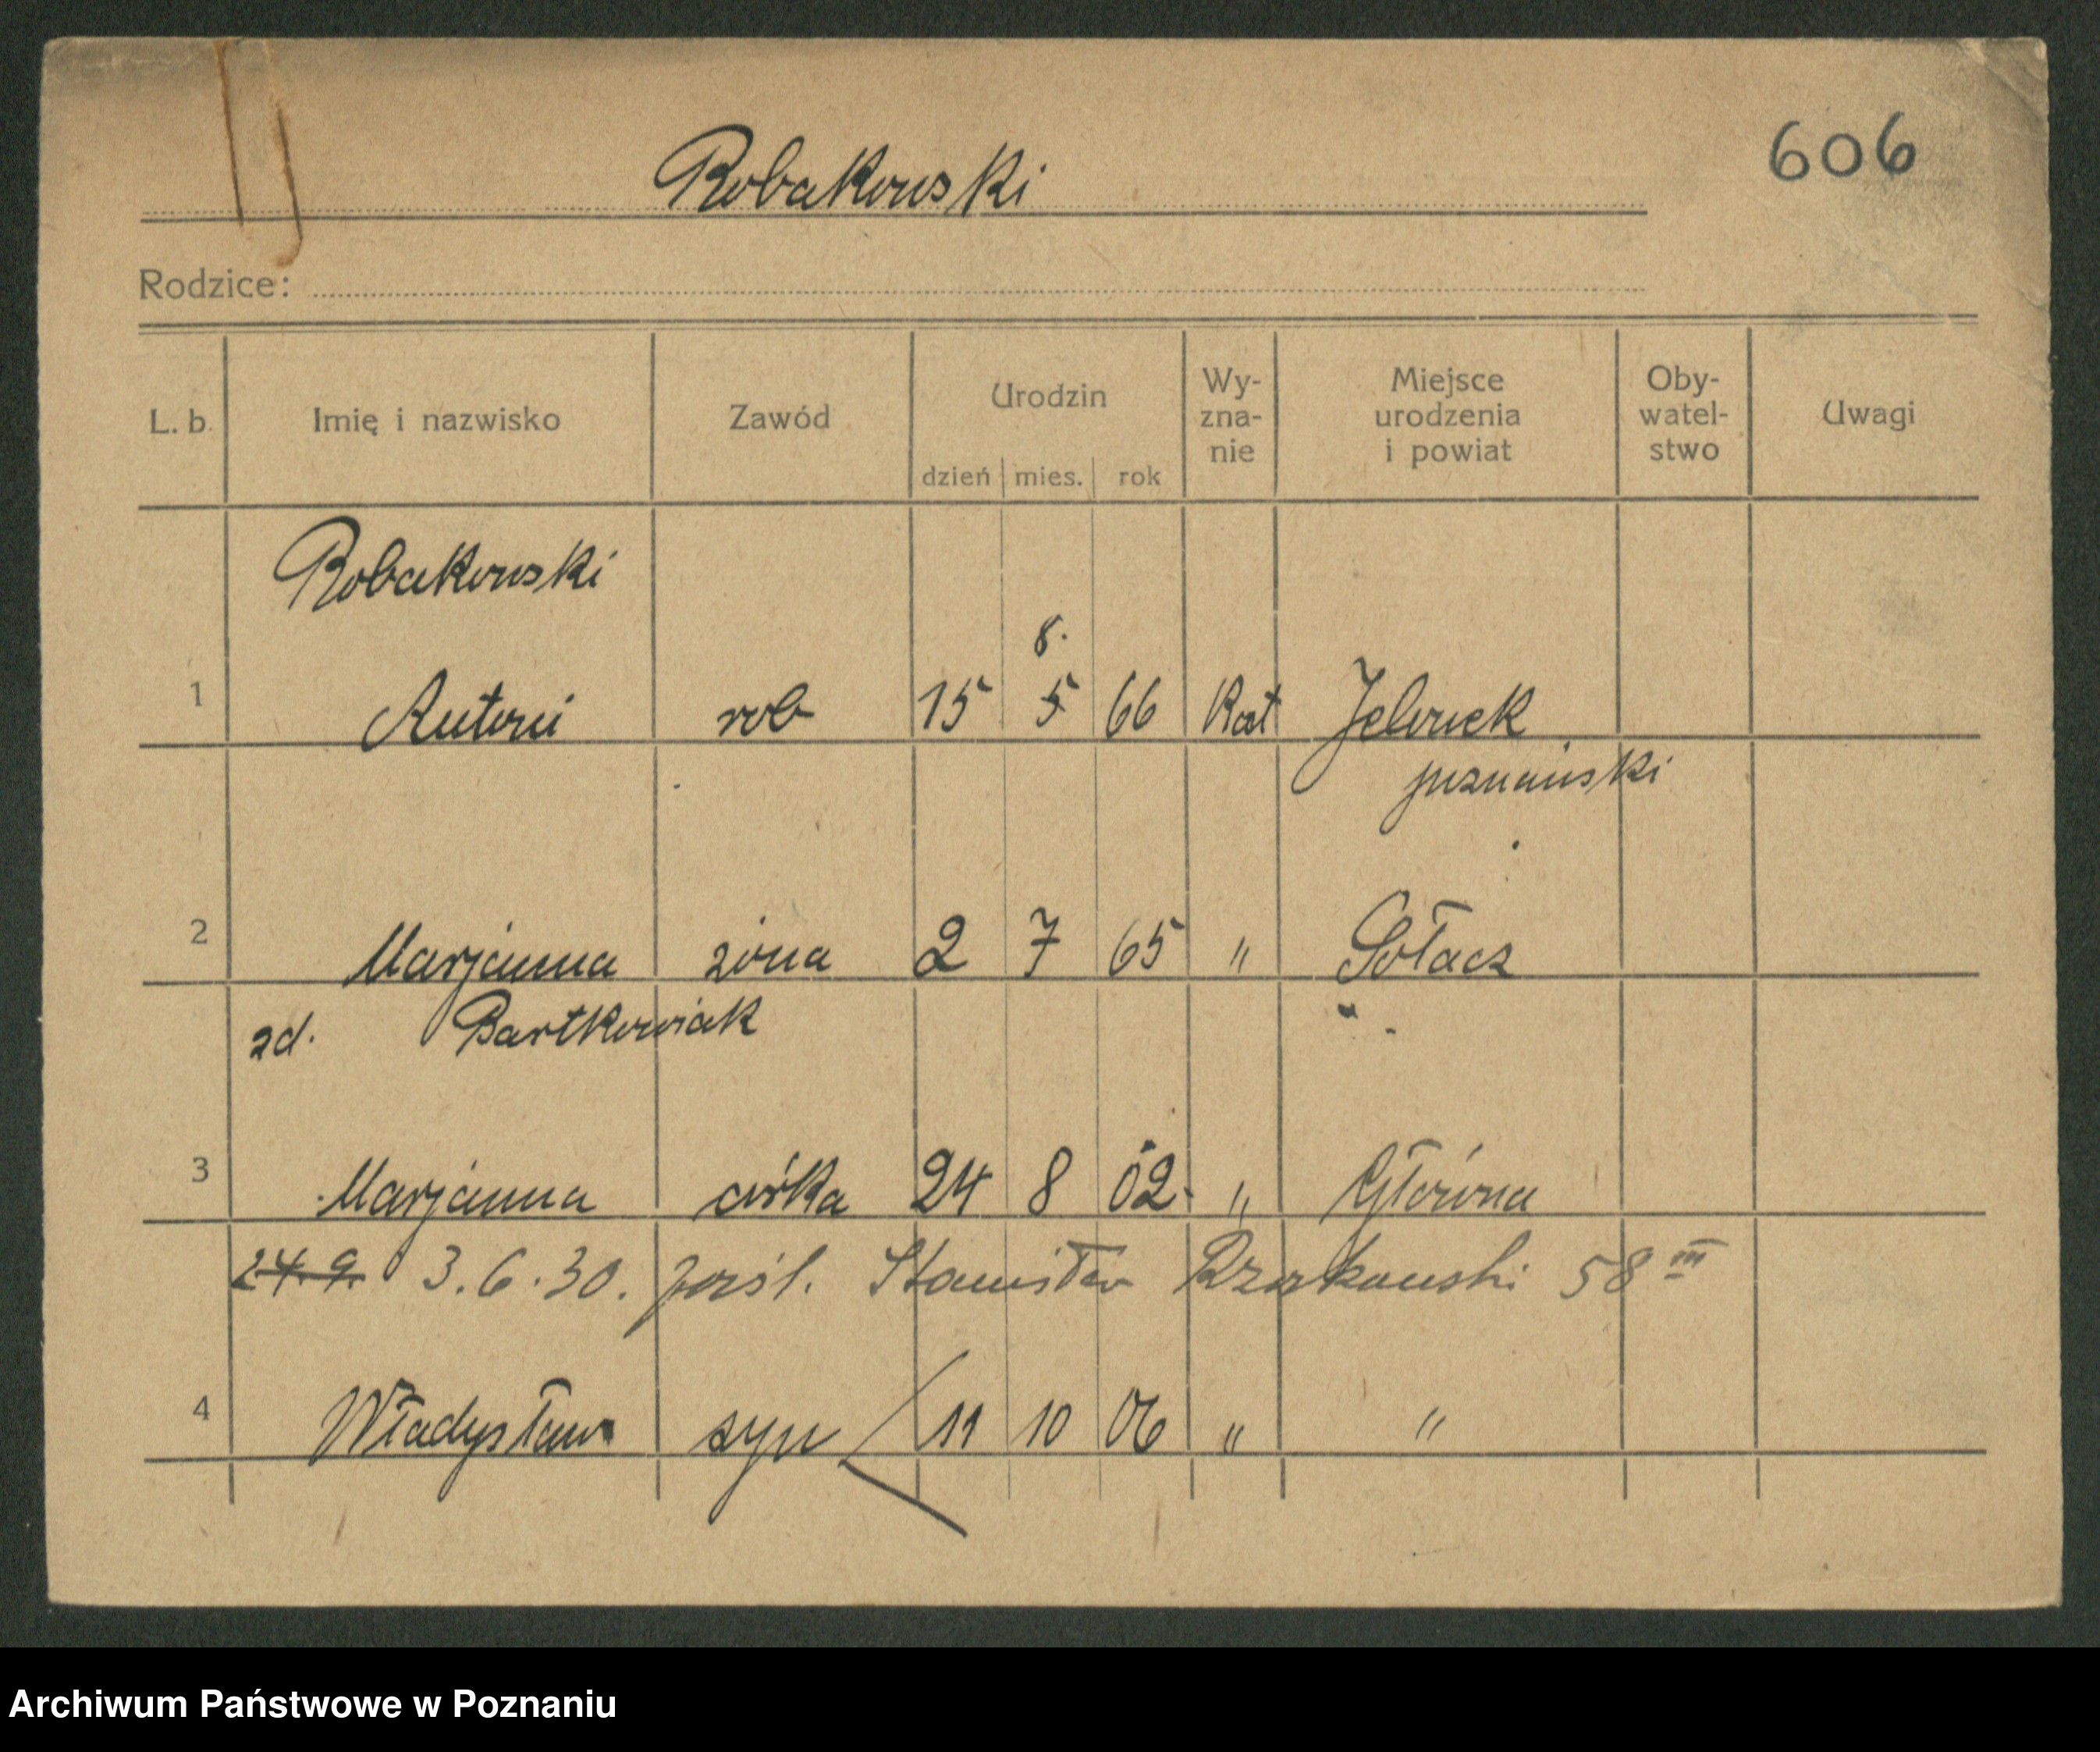 606
Robakowski
Rodzice:
L. b. Imię i nazwisko Zawód Urodzin dzień mies. rok Wy-zna-nie Miejsce urodzenia i powiat Oby-watel-stwo Uwagi
Robakowski
8.
1 Antoni rob 15 5 66 Kat Jelonek
poznański
2 Marjanna żona 2 7 65 " Sołacz
zd. Bartkowiak "
3 Marjanna córka 24 8 02 " Główna
24.9. 3.6.30. pośl. Stanisław 58 III
4 Władysław syn 11 10 06 " "
Archiwum Państwowe w Poznaniu